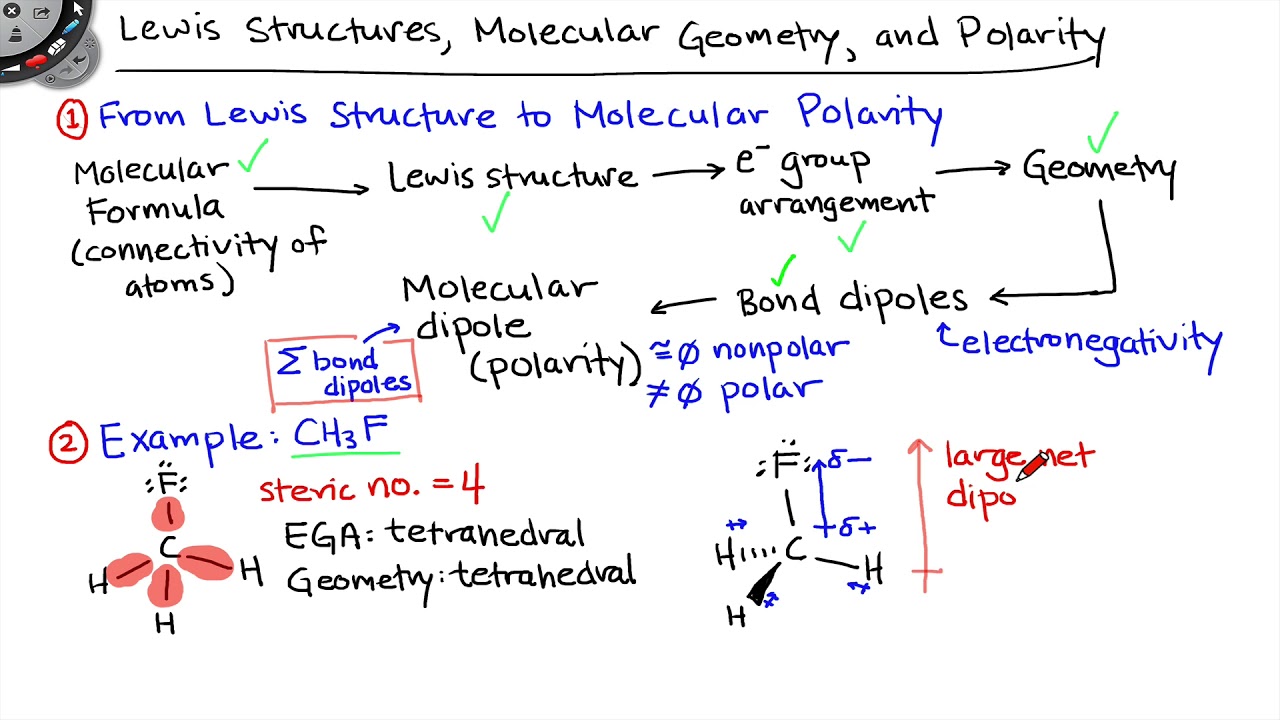 Lewis Structures, Molecular Geometry, and Polarity
① From Lewis Structure to Molecular Polarity
Molecular Formula (connectivity of atoms) ✓ → Lewis structure ✓ → e⁻ group arrangement ✓ → Geometry ✓
Bond dipoles ✓
electronegativity
Molecular dipole (polarity)
≅ ∅ nonpolar
≠ ∅ polar
Σ bond
dipoles
② Example: CH₃F
:F:
C
H
H
H
steric no. = 4
EGA: tetrahedral
Geometry: tetrahedral
:F: δ−
δ+
H C H
H
large net
dipo